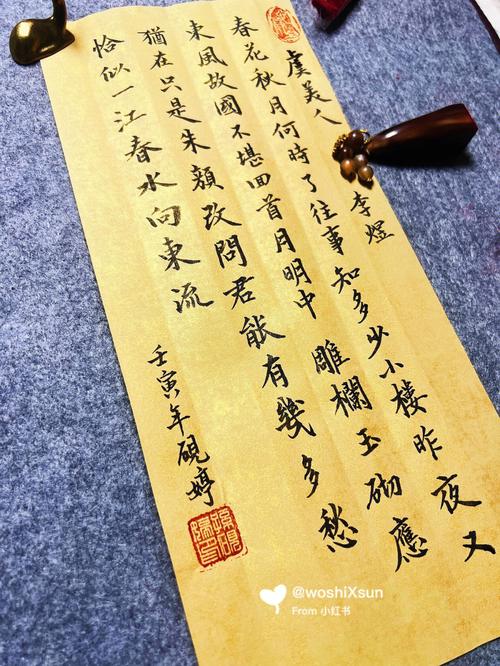 虞美人 李煜
春花秋月何時了往事知多少小楼昨夜又
東風故國不堪回首月明中雕欄玉砌應
猶在只是朱顏改問君能有幾多愁
恰似一江春水向東流
壬寅年硯婷
@woshiXsun
From 小红书